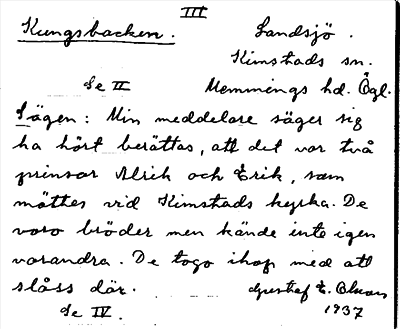 III
Kungsbacken. Landsjö.
Kimstads sn.
Se II Memmings hd. Ögl.
Sägen: Min meddelare säger sig
ha hört berättas, att det var två
prinsar Alrik och Erik, som
möttes vid Kimstads kyrka. De
voro bröder men kände inte igen
varandra. De togo ihop med att
slåss där. Gustaf E. Olsson
Se IV. 1937